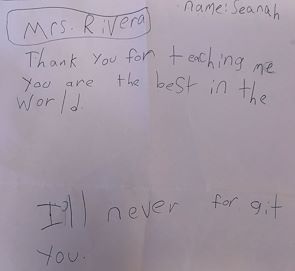 name: Seanah
Mrs. Rivera
Thank you for teaching me
you are the best in the
world.
I'll never for git
you.